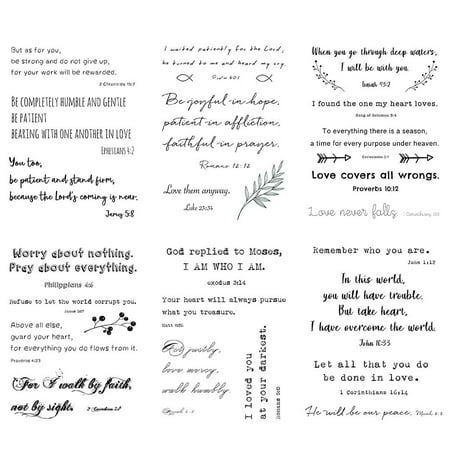 But as for you,
be strong and do not give up,
for your work will be rewarded.
2 Chronicles 15:7
BE COMPLETELY HUMBLE AND GENTLE
BE PATIENT
BEARING WITH ONE ANOTHER IN LOVE
EPHESIANS 4:2
You too,
be patient and stand firm,
because the Lord's coming is near.
James 5:8
I waited patiently for the Lord,
he turned to me and heard my cry.
Psalm 40:1
Be joyful in hope,
patient in affliction,
faithful in prayer.
Romans 12:12
Love them anyway.
Luke 23:34
When you go through deep waters,
I will be with you.
Isaiah 43:2
I found the one my heart loves.
Song of Solomon 3:4
To everything there is a season,
a time for every purpose under heaven.
Ecclesiastes 3:1
Love covers all wrongs.
Proverbs 10:12
Love never fails.
Worry about nothing.
Pray about everything.
Philippians 4:6
Refuse to let the world corrupt you.
James 1:27
Above all else,
guard your heart,
for everything you do flows from it.
Proverbs 4:23
For I walk by faith,
not by sight.
2 Corinthians 5:7
God replied to Moses,
I AM WHO I AM.
exodus 3:14
Your heart will always pursue
what you treasure.
Act justly,
love mercy,
walk humbly.
I loved you
at your darkest.
Romans 5:8
Remember who you are.
John 1:12
In this world,
you will have trouble.
But take heart,
I have overcome the world.
John 16:33
Let all that you do
be done in love.
1 Corinthians 16:14
He will be our peace.